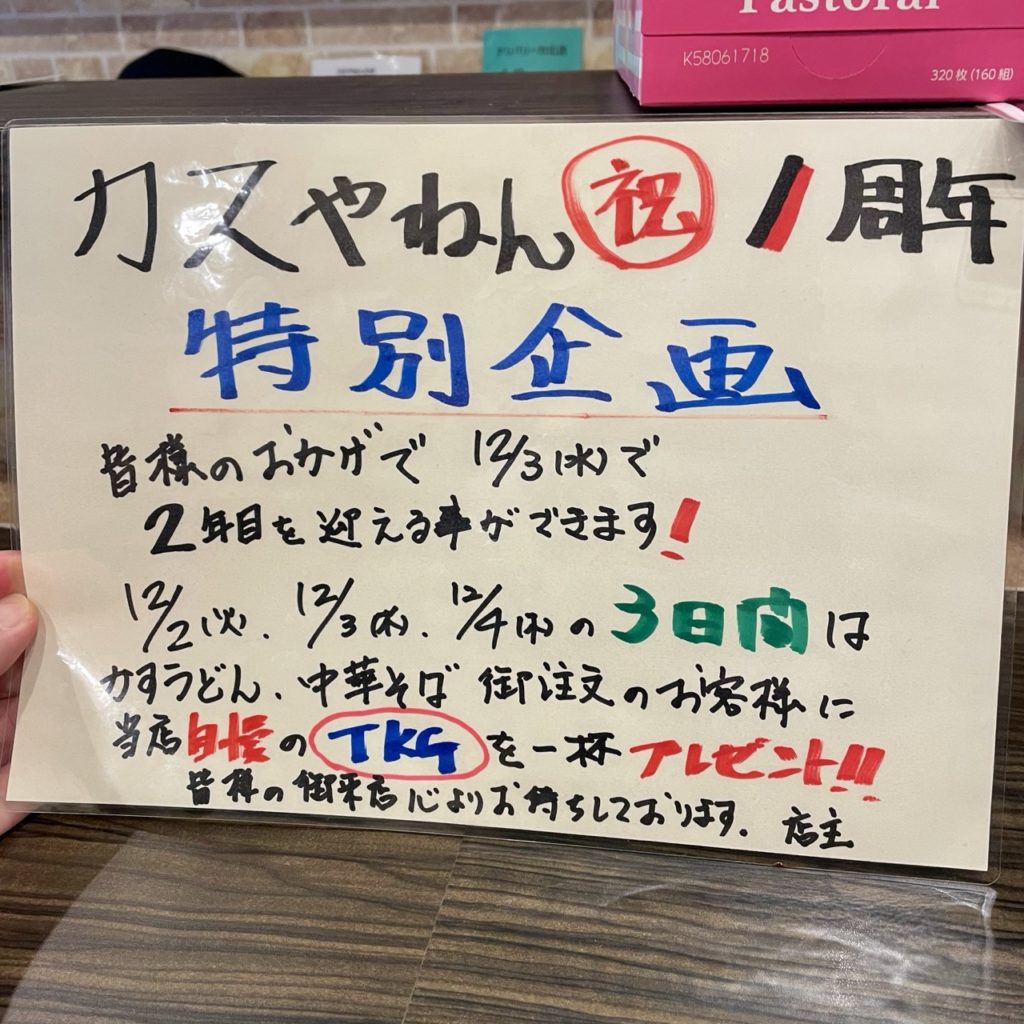 Pastoral
K58061718
320枚(160組)
カスやねん 祝 1周年
特別企画
皆様のおかげで 12/3(水)で
2年目を迎える事ができます!
12/2(火)、12/3(水)、12/4(木)の3日間は
かすうどん、中華そば 御注文のお客様に
当店自慢のTKGを一杯プレゼント!!
皆様の御来店心よりお待ちしております。 店主